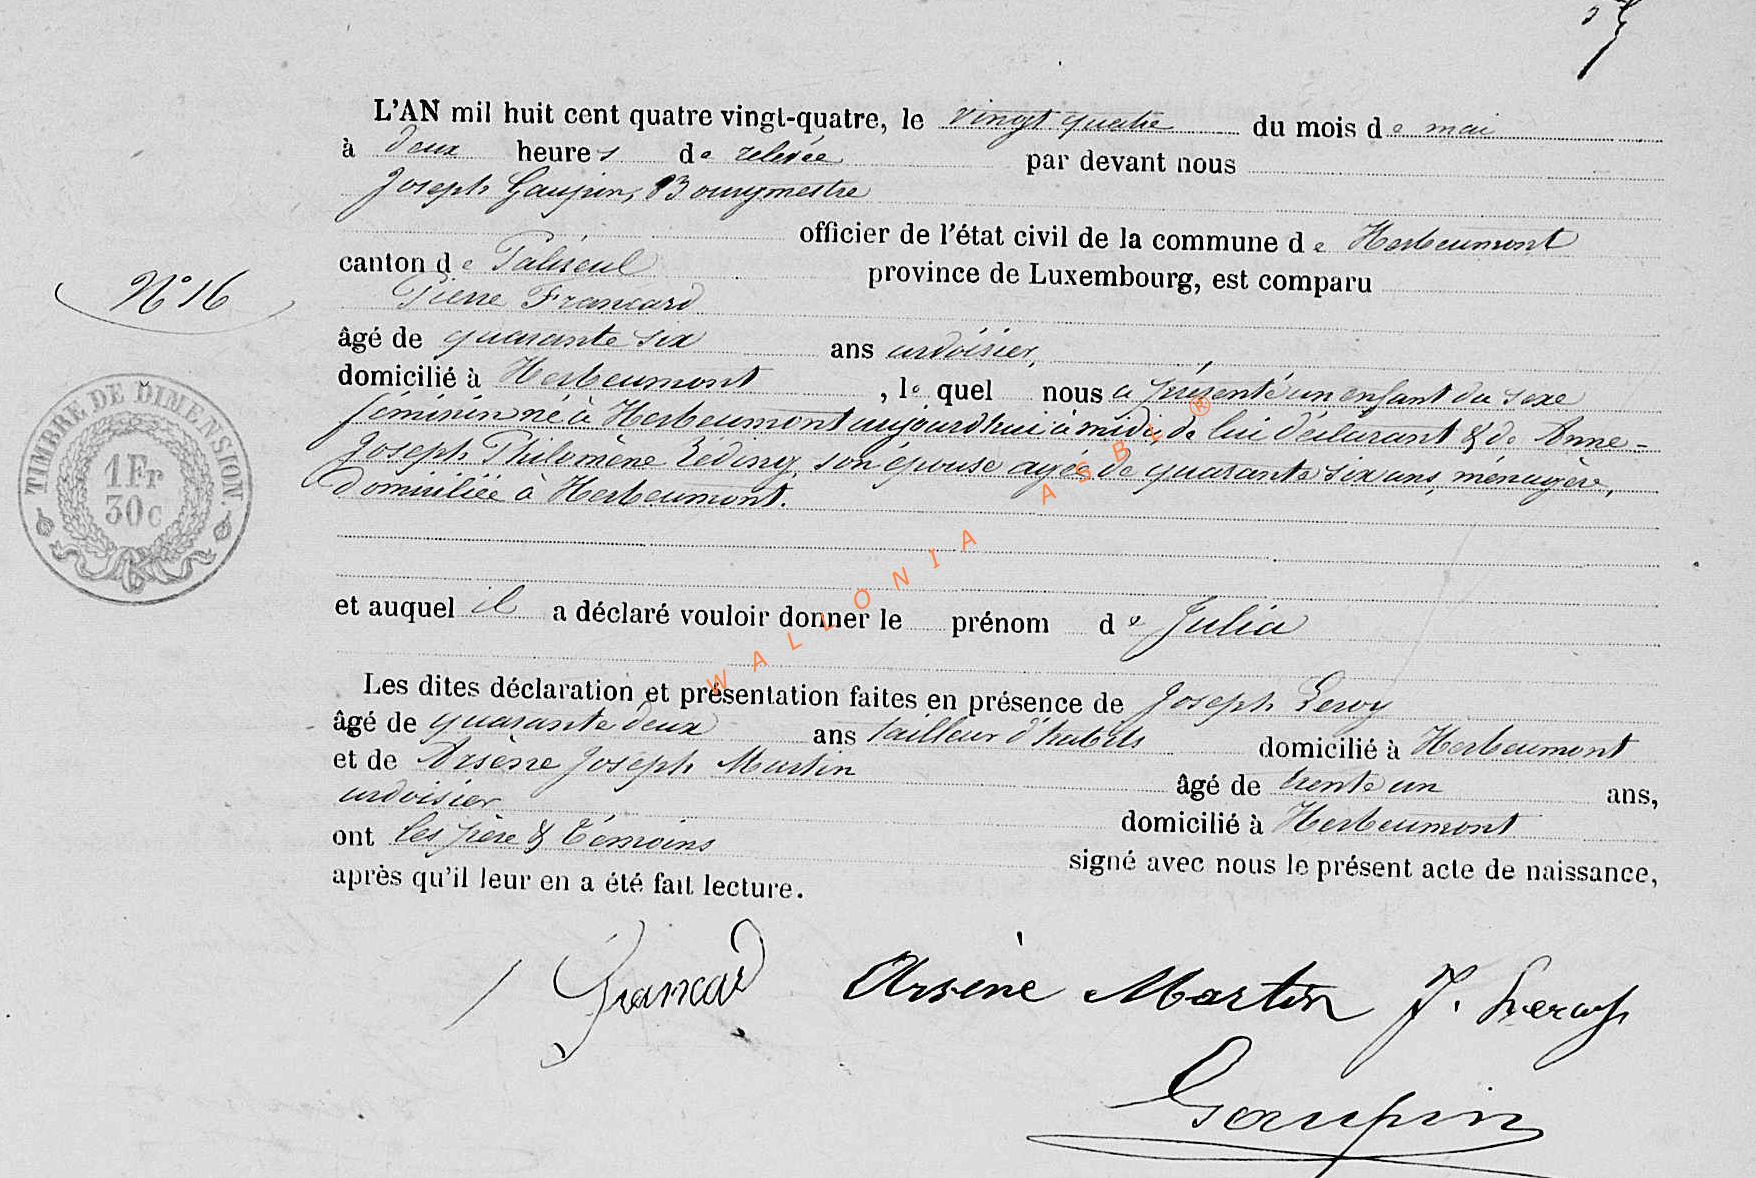 27
L'AN mil huit cent quatre vingt-quatre, le vingt quatre du mois de mai
à deux heures de relevée par devant nous
Joseph Gaupin, Bourgmestre
officier de l'état civil de la commune de Herbeumont
canton de Paliseul province de Luxembourg, est comparu
Pierre Francard
N° 16
âgé de quarante six ans ardoisier,
domicilié à Herbeumont, le quel nous a présenté un enfant du sexe
féminin né à Herbeumont aujourd'hui à midi, de lui déclarant & de Anne-
Joseph Philomène Léding, son épouse agée de quarante six ans, ménagère,
domiciliée à Herbeumont.
TIMBRE DE DIMENSION
1 Fr
30 c
et auquel il a déclaré vouloir donner le prénom de Julia
Les dites déclaration et présentation faites en présence de Joseph Leroy
âgé de quarante deux ans tailleur d'habits domicilié à Herbeumont
et de Arsène Joseph Martin âgé de trente un ans,
ardoisier domicilié à Herbeumont
ont les père & témoins signé avec nous le présent acte de naissance,
après qu'il leur en a été fait lecture.
Francard Arsène Martin J. Leroy
Gaupin
WALLONIA ASBL ®